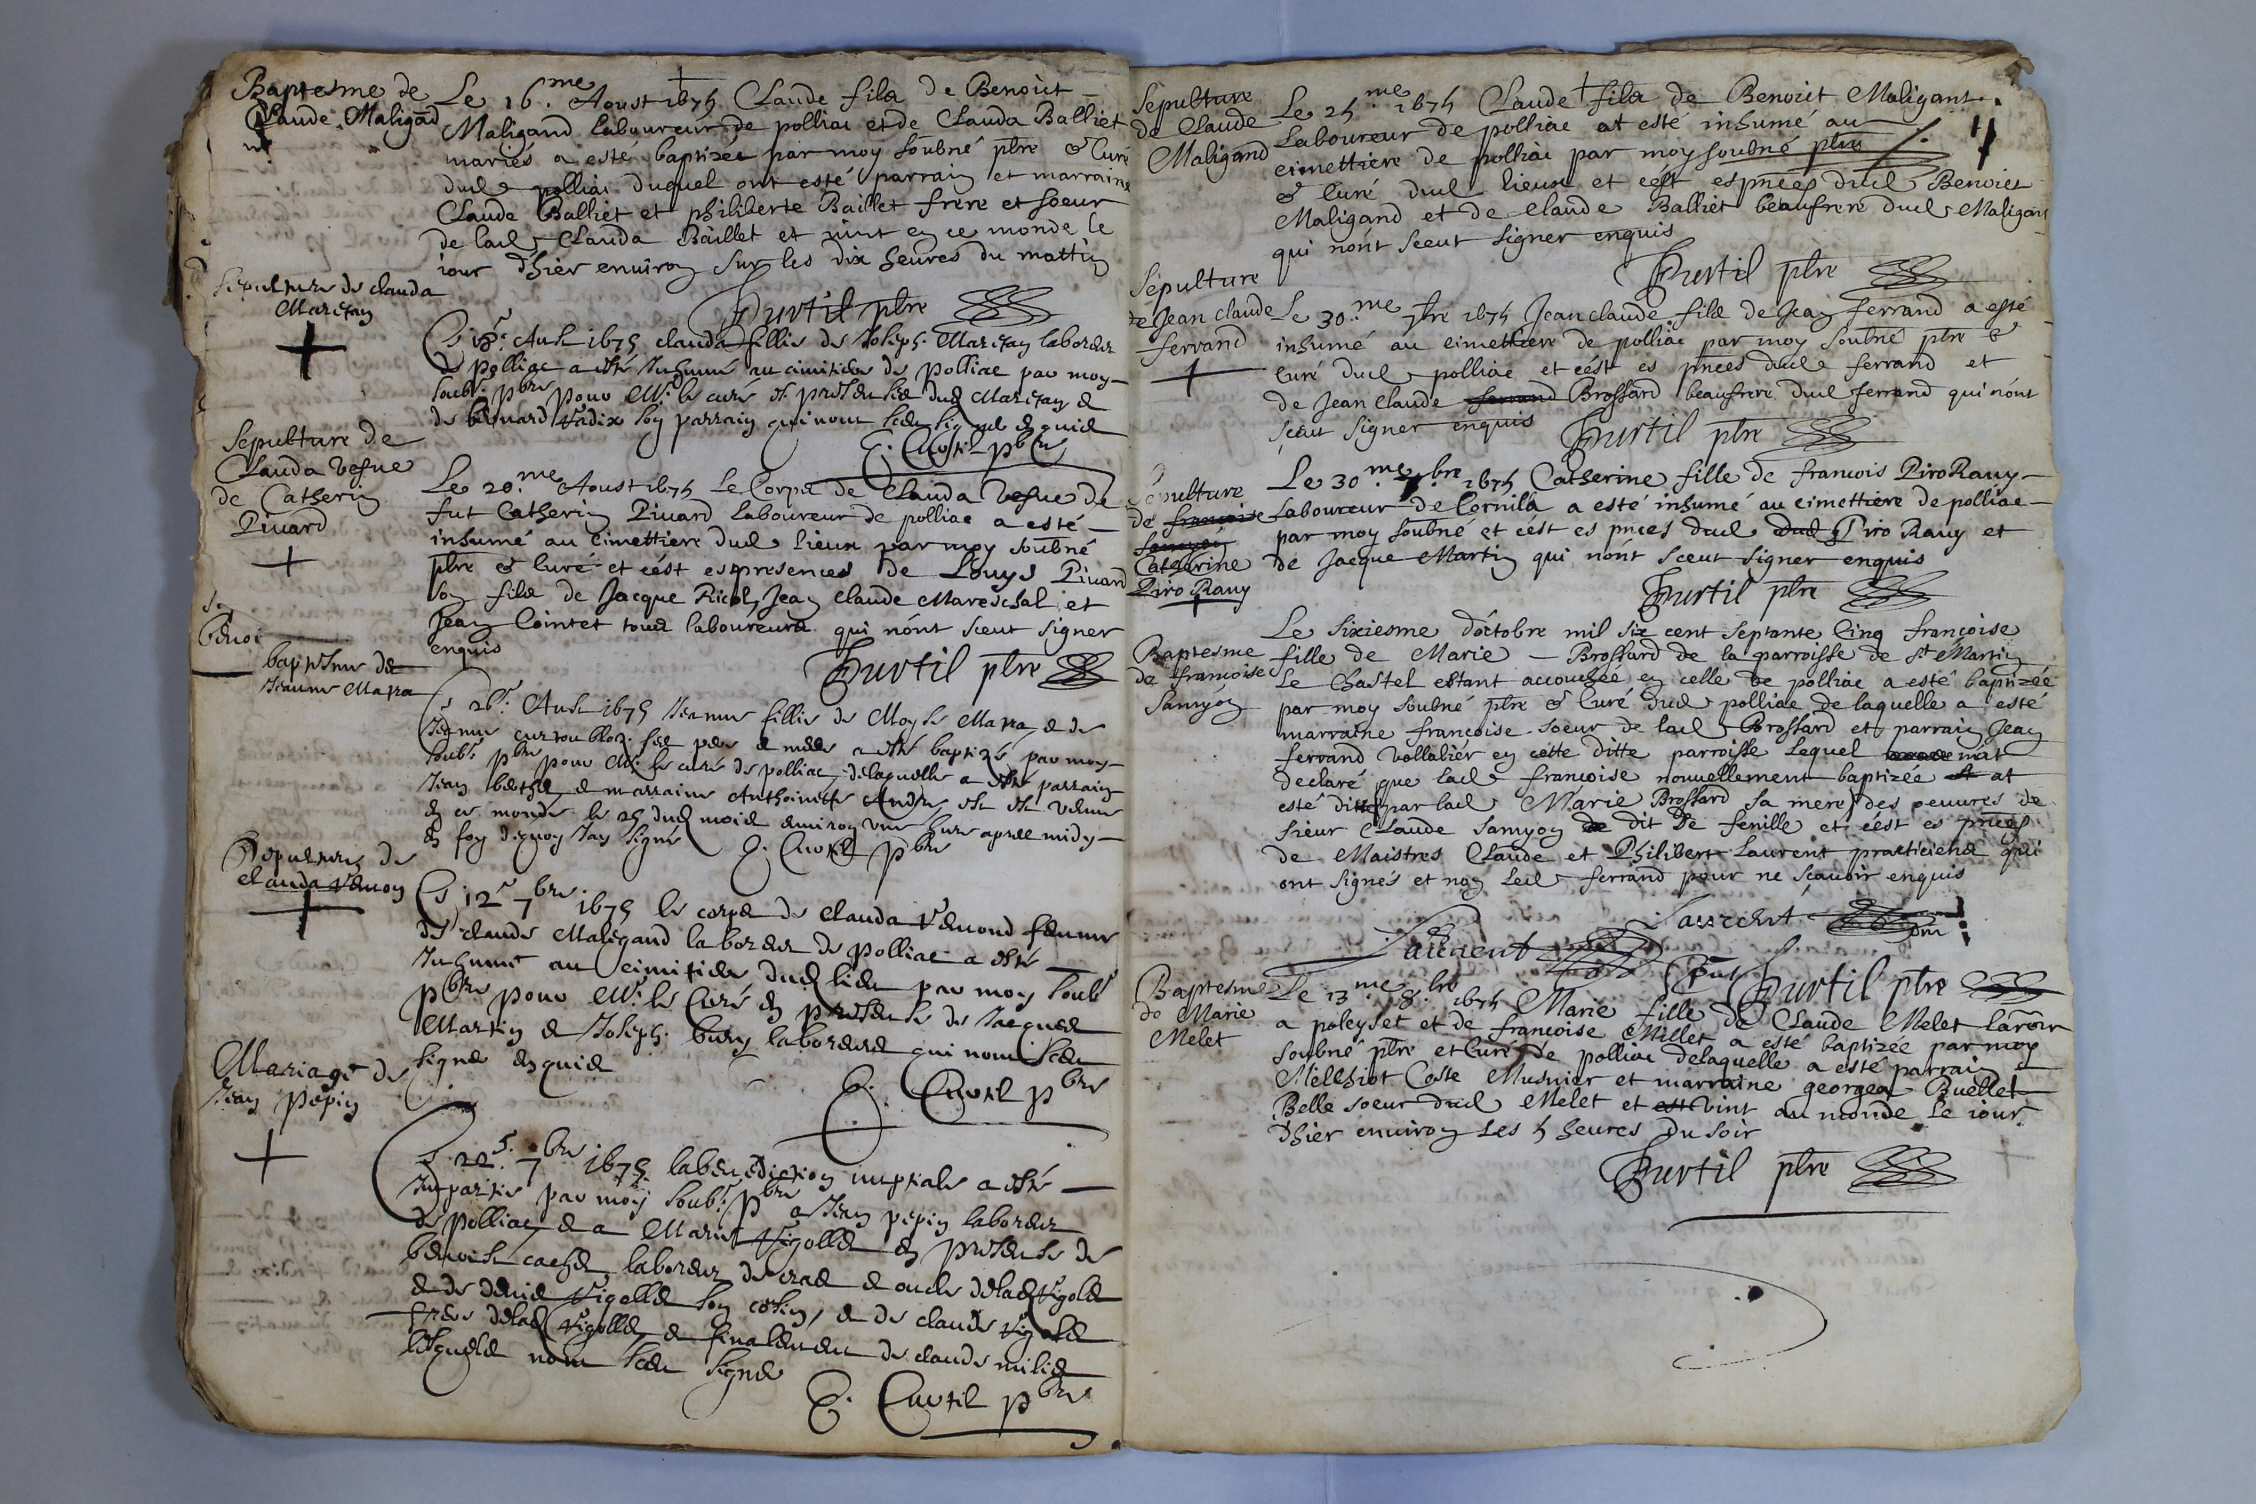 Baptesme de
Claude Maligad
Le 16.me Aoust 1675 Claude fils de Benoict
Maligand laboureur de polliac et de Clauda Balliet
mariés a esté baptizée par moy soubné ptre & Curé
dud polliac duquel ont esté parrain et marraine
Claude Balliet et philiberte Baillet frere et soeur
de lad Clauda Baillet et vint en ce monde le
iour d'hier environ sur les dix heures du mattin
Curtil ptre
Sepulture de clauda
Marecan
1675 clauda fillie de Joseph laboreur
de polliac a esté Inhumé au cimitiere de polliac par moy
soubt. pbre pour Mr. le curé
de bernard son parrain
E. Curtil pbre
Sepulture de
Clauda vefue
de Catherin
Piuard
Le 20.me Aoust 1675 Le Corps de Clauda Vefue de
fut Catherin Piuard Laboureur de polliac a esté
inhumé au cimettiere dud lieux par moy soubné
ptre & Curé et c'est es presences de Louys Piuard
son fils de Jacque Ricol Jean Claude Mareschal et
Jean Cointet tous laboureurs qui n'ont sceut signer
enquis
Curtil ptre
benoi
baptesme de
Jeanne Mara
Le 26e. Aust 1675 Jeanne fillie de Moyse Mara & de
Jeanne a esté baptizé par moy
soubt. pbre pour Mr. le curé de polliac, delaquelle a esté parrain
Jean & marraine Anthoinette Andre
en ce monde le 25 dud mois environ une heure apres midy
en foy dequoy Jay signé E. Curtil pbre
Sepulture de
clauda vernon
Le 12e 7bre 1675 le corps de clauda femme
de claude Maligand laboreur de polliac a esté
Inhumé au cimitiere dud lieu par moy soubt
pbre pour Mr. le Curé en presence de Jacques
Martin & Joseph. bury laboreurs qui nont sceu
signer enquis
E. Curtil pbre
Mariage de
Jean pepin
Le 22e. 7bre 1675 la benediction nuptiale a esté
Impartie par moy soubt. pbre a Jean pepin laboreur
de polliac & a Marie Vigolle en presence de
benoist laboreur de cras & oncle delad Vigolle
& de denis Vigolle son cosin, & de claude Vigolle
frere delad Vigolle & finalement de claude
lesquels nont sceu signer
E. Curtil pbre
Sepulture
de Claude
Maligand
Le 25.me 1675 Claude fils de Benoict Maligant
Laboureur de polliac at esté inhumé au
cimettiere de polliac par moy soubné ptre
& Curé dud lieux et c'est es pnces dud Benoict
Maligand et de Claude Balliet beaufrere dud Maligant
qui n'ont sceut signer enquis
Curtil ptre
Sépulture
de Jean claude
ferrand
Le 30.me 7bre 1675 Jean claude fils de Jean ferrand a esté
inhumé au cimettiere de polliac par moy soubné ptre &
Curé dud polliac et c'est es pnces dud ferrand et
de Jean claude ferrand Brossard beaufrere dud ferrand qui n'ont
sceut signer enquis
Curtil ptre
Sepulture
de francoise
Samyon
Catherine
Piro Rauy
Le 30.me 7bre 1675 Catherine fille de francois Piro Rauy
Laboureur de Cornilla a esté inhumé au cimettiere de polliac
par moy soubné et c'est es pnces dud dud Piro Rauy et
de Jacque Martin qui n'ont sceut signer enquis
Curtil ptre
Baptesme
de francoise
Samyon
Le sixiesme d'octobre mil six cent septante Cinq françoise
fille de Marie Brossard de la parroisse de St Martin
Le Chastel estant accouchée en celle de polliac a esté baptizée
par moy soubné ptre & Curé dud polliac de laquelle a esté
marraine francoise soeur de lad Brossard et parrain Jean
ferrand Vollatier en cette ditte parroisse Lequel m'at
declaré que lad francoise nouvellement baptizée at
esté ditte par lad Marie Brossard sa mere des oeuvres de
sieur Claude Samyon dit De fenille et c'est es pnces
de Maistres Claude et Philibert Laurent practiciens qui
ont signés et non Led ferrand pour ne sçauoir enquis
Laurent
Laurent
Curtil ptre
Baptesme
de Marie
Melet
Le 13.me 8.bre 1675 Marie fille de Claude Melet
a poleyset et de francoise Millet a esté baptizée par moy
soubné ptre et Curé de polliac delaquelle a esté parrain
Melchiot Coste Musnier et marraine georgea Buellet
Belle soeur dud Melet et est vint au monde le iour
d'hier environ les 5 heures Du soir
Curtil ptre